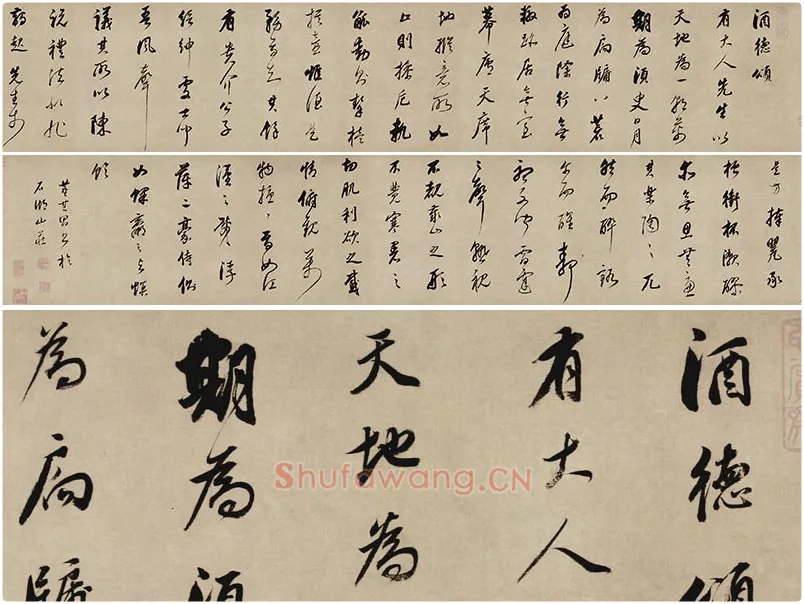 酒德頌
有大人先生以
天地為一朝萬
期為須臾日月
為扃牖八荒
為庭除行無
轍跡居無室
幕廬天席
地縱意所如
止則操卮執
觚動則挈榼
提壺惟酒是
務焉知其餘
有貴介公子
縉紳處士聞
吾風聲
議其所以陳
說禮法是非
蜂起先生於
是方捧甖承
槽銜杯漱醪
無思無慮
其樂陶々兀
然而醉豁
尔而醒靜
聽不聞雷霆
之聲熟視
不覩泰山之形
不覺寒暑之
切肌利欲之感
情俯觀萬
物擾々焉如江
漢之載浮
萍二豪侍側
如蜾蠃之與螟
蛉
董其昌書於
石湖山莊
酒德頌
有大人
天地為
期為須
為扃牖
Shufawang.CN